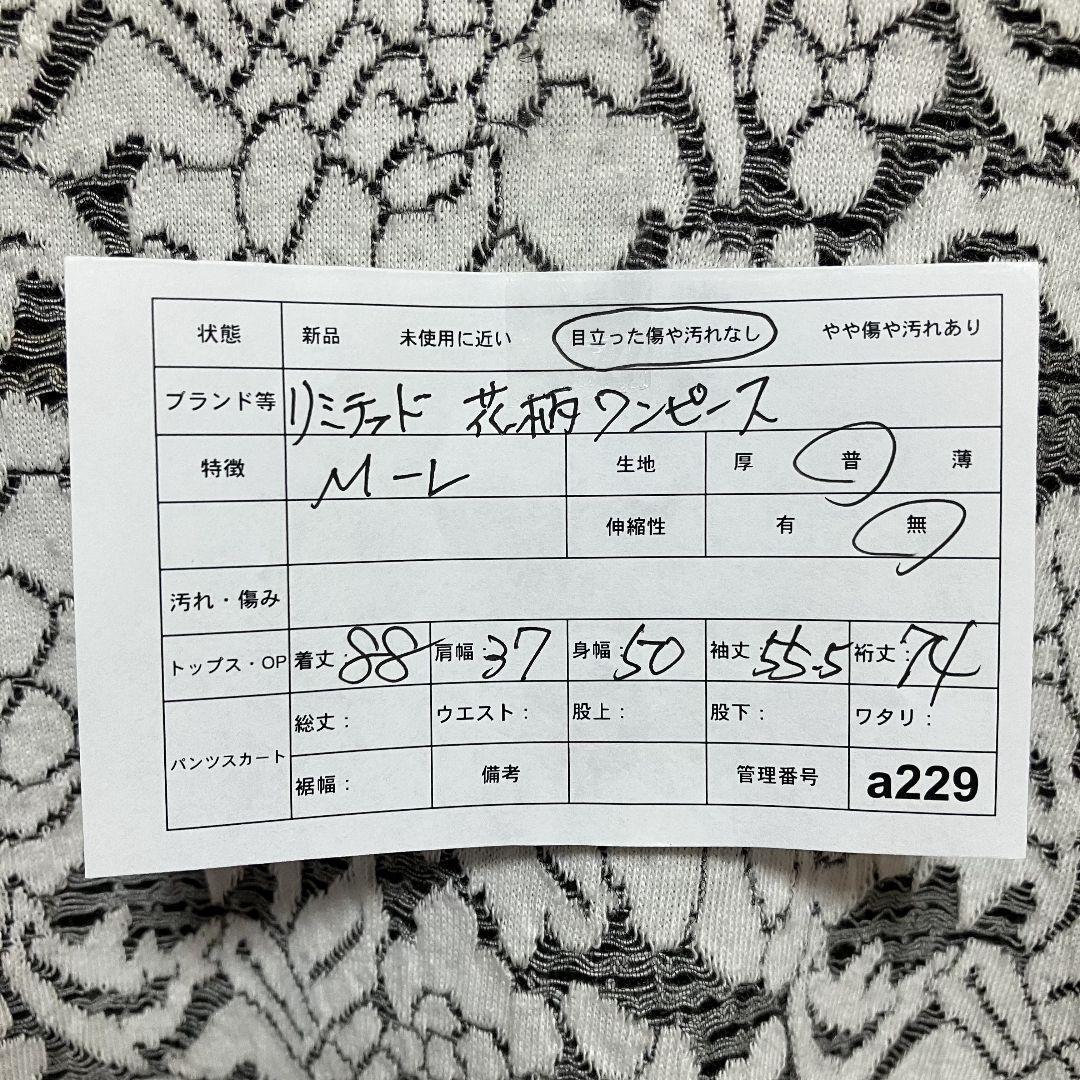 状態 新品 未使用に近い 目立った傷や汚れなし やや傷や汚れあり
ブランド等 リミテッド 花柄ワンピース
特徴 M-L 生地 厚 普 薄
伸縮性 有 無
汚れ・傷み
トップス・OP 着丈:88 肩幅:37 身幅:50 袖丈:55.5 裄丈:74
パンツスカート 総丈: ウエスト: 股上: 股下: ワタリ:
裾幅: 備考 管理番号 a229